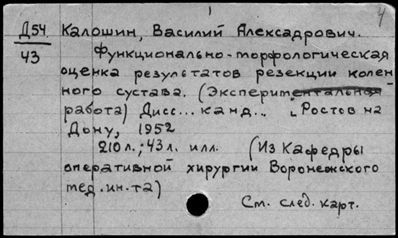 Д54 Калошин, Василий Алексадрович.
43 Функционально-морфологическая
оценка результатов резекции колен
ного сустава. (Экспериментальная
работа) Дисс... канд... Ростов на
Дону, 1952
210 л.; 43 л. илл. (Из Кафедры
оперативной хирургии Воронежского
мед. ин-та)
См. след. карт.